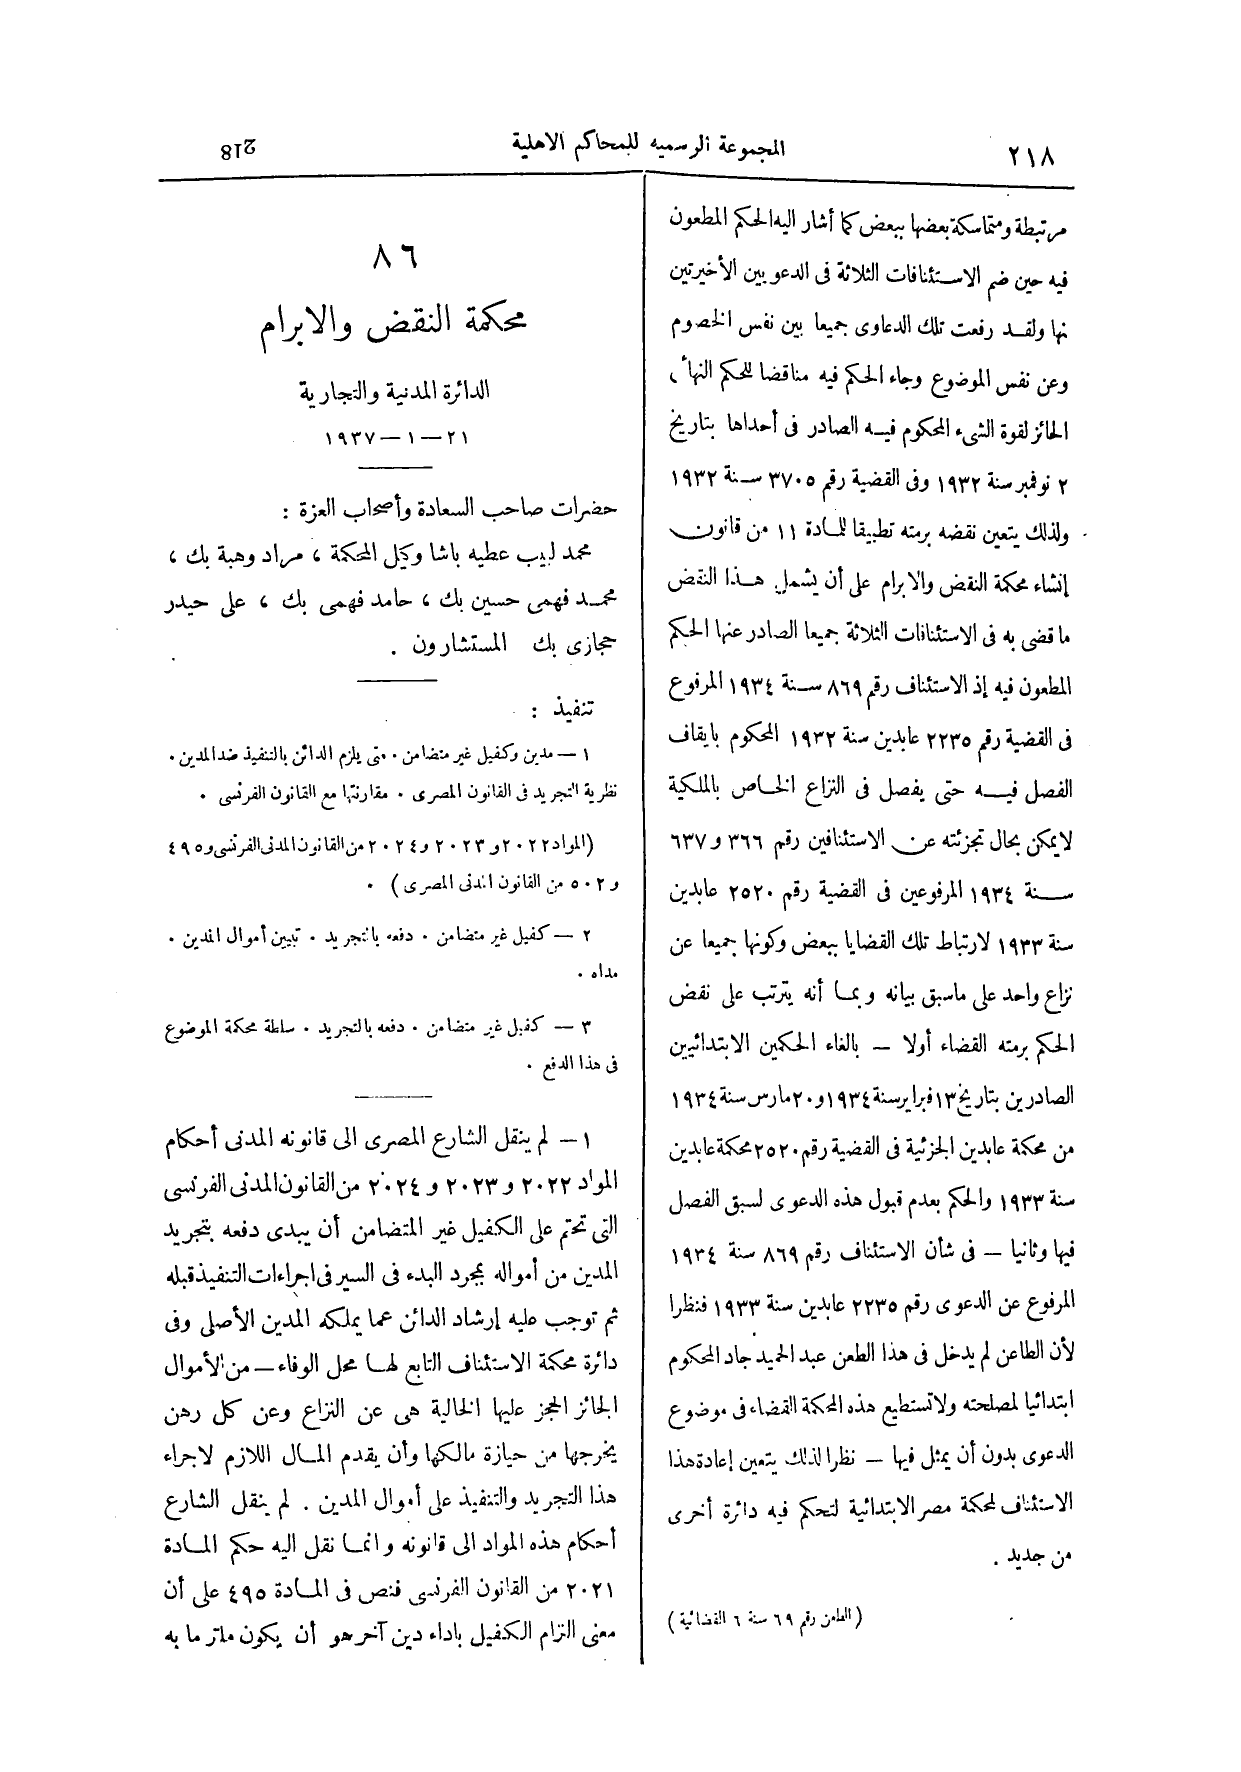 ٢١٨
المجموعة الرسميه للمحاكم الاهلية
218
مرتبطة ومتماسكة بعضها ببعض كما أشار اليه الحكم المطعون
فيه حين ضم الاستئنافات الثلاثة فى الدعويين الأخيرتين
نها ولقد رفعت تلك الدعاوى جميعا بين نفس الخصوم
وعن نفس الموضوع وجاء الحكم فيه مناقضا للحكم النهأى
الحائز لقوة الشىء المحكوم فيه الصادر فى أحداها بتاريخ
٢ نوفمبر سنة ١٩٣٢ وفى القضية رقم ٣٧٠٥ سنة ١٩٣٢
ولذلك يتعين نقضه برمته تطبيقا للمادة ١١ من قانون
إنشاء محكمة النقض والابرام على أن يشمل هذا النقض
ما قضى به فى الاستئنافات الثلاثة جميعا الصادر عنها الحكم
المطعون فيه إذ الاستئناف رقم ٨٦٩ سنة ١٩٣٤ المرفوع
فى القضية رقم ٢٢٣٥ عابدين سنة ١٩٣٢ المحكوم بايقاف
الفصل فيه حتى يفصل فى النزاع الخاص بالملكية
لايمكن بحال تجزئته عن الاستئنافين رقم ٣٦٦ و ٦٣٧
سنة ١٩٣٤ المرفوعين فى القضية رقم ٢٥٢٠ عابدين
سنة ١٩٣٣ لارتباط تلك القضايا ببعض وكونها جميعا عن
نزاع واحد على ماسبق بيانه وبما أنه يترتب على نقض
الحكم برمته القضاء أولا — بالغاء الحكمين الابتدائيين
الصادرين بتاريخ ١٣ فبراير سنة ١٩٣٤ و ٢٠ مارس سنة ١٩٣٤
من محكمة عابدين الجزئية فى القضية رقم ٢٥٢٠ محكمة عابدين
سنة ١٩٣٣ والحكم بعدم قبول هذه الدعوى لسبق الفصل
فيها وثانيا — فى شأن الاستئناف رقم ٨٦٩ سنة ١٩٣٤
المرفوع عن الدعوى رقم ٢٢٣٥ عابدين سنة ١٩٣٣ فنظرا
لأن الطاعن لم يدخل فى هذا الطعن عبد الحميد جاد المحكوم
ابتدائيا لمصلحته ولاتستطيع هذه المحكمة القضاء فى موضوع
الدعوى بدون أن يمثل فيها — نظرا لذلك يتعين إعادة هذا
الاستئناف لمحكمة مصر الابتدائية لتحكم فيه دائرة أخرى
من جديد .
( الطعن رقم ٦٩ سنة ٦ القضائية )
٨٦
محكمة النقض والابرام
الدائرة المدنية والتجارية
٢١—١—١٩٣٧
حضرات صاحب السعادة وأصحاب العزة :
محمد لبيب عطيه باشا وكيل المحكمة ، مراد وهبة بك ،
محمد فهمى حسين بك ، حامد فهمى بك ، على حيدر
حجازى بك المستشارون .
تنفيذ :
١ — مدين وكفيل غير متضامن . متى يلزم الدائن بالتنفيذ ضد المدين .
نظرية التجريد فى القانون المصرى . مقارنتها مع القانون الفرنسى .
(المواد ٢٠٢٢ و ٢٠٢٣ و ٢٠٢٤ من القانون المدنى الفرنسى و ٤٩٥
و ٥٠٢ من القانون المدنى المصرى ) .
٢ — كفيل غير متضامن . دفعه بالتجريد . تبيين أموال المدين .
مداه .
٣ — كفيل غير متضامن . دفعه بالتجريد . سلطة محكمة الموضوع
فى هذا الدفع .
١ — لم ينقل الشارع المصرى الى قانونه المدنى أحكام
المواد ٢٠٢٢ و ٢٠٢٣ و ٢٠٢٤ من القانون المدنى الفرنسى
التى تحتم على الكفيل غير المتضامن أن يبدى دفعه بتجريد
المدين من أمواله بمجرد البدء فى السير فى اجراءات التنفيذ قبله
ثم توجب عليه إرشاد الدائن عما يملكه المدين الأصلى وفى
دائرة محكمة الاستئناف التابع لها محل الوفاء — من الأموال
الجائز الحجز عليها الخالية هى عن النزاع وعن كل رهن
يخرجها من حيازة مالكها وأن يقدم المال اللازم لاجراء
هذا التجريد والتنفيذ على أموال المدين . لم ينقل الشارع
أحكام هذه المواد الى قانونه وانما نقل اليه حكم المادة
٢٠٢١ من القانون الفرنسى فنص فى المادة ٤٩٥ على أن
معنى التزام الكفيل باداء دين آخر هو أن يكون ملتزما به